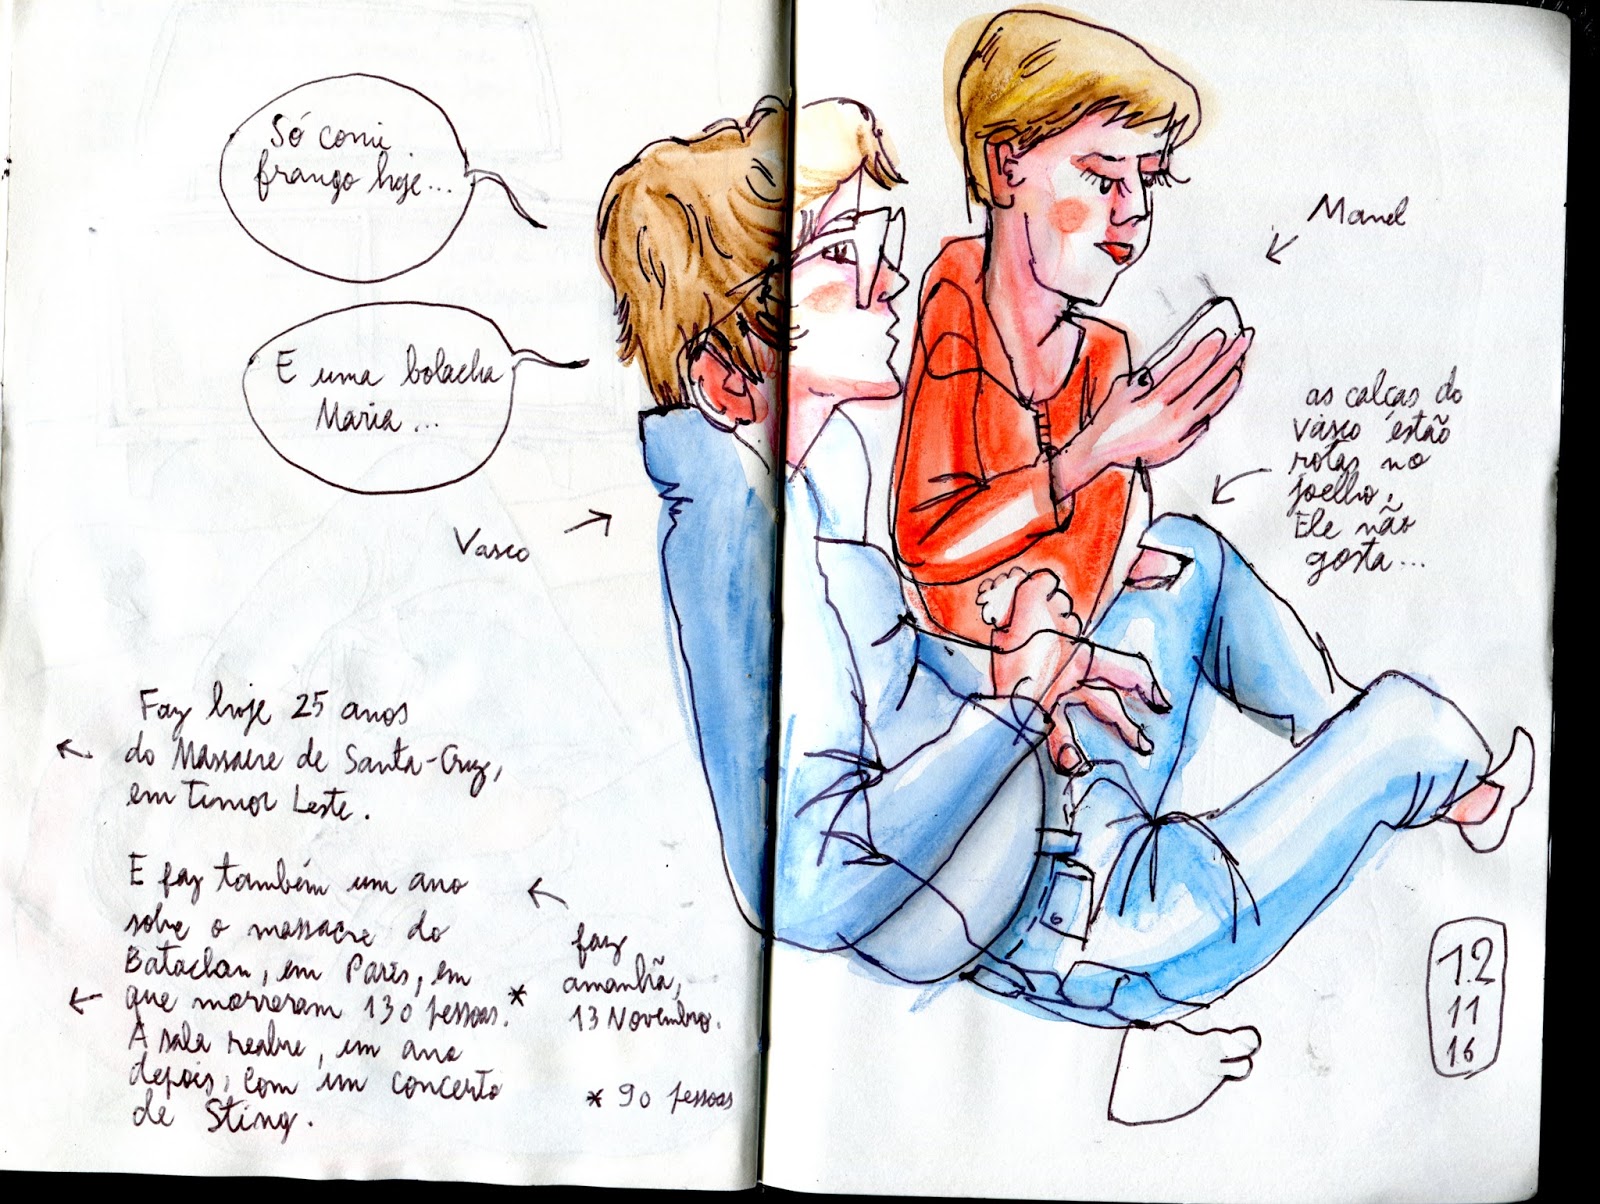 Só comi
frango hoje...
E uma bolacha
Maria...
Vasco
Manel
as calças do
Vasco estão
rotas no
joelho.
Ele não
gosta...
Faz hoje 25 anos
do Massacre de Santa-Cruz,
em Timor Leste.
E faz também um ano
sobre o massacre do
Bataclan, em Paris, em
que morreram 130 pessoas. *
A sala reabre, um ano
depois, com um concerto
de Sting.
faz
amanhã,
13 Novembro.
* 90 pessoas
12
11
16